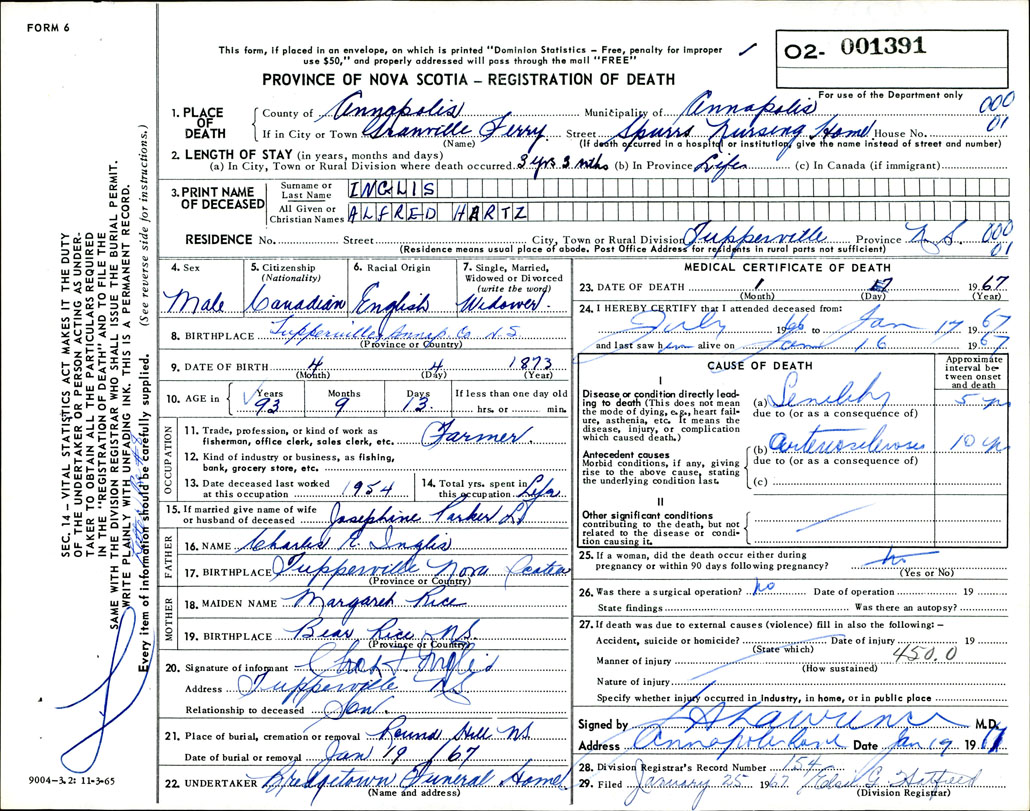 FORM 6
This form, if placed in an envelope, on which is printed "Dominion Statistics – Free, penalty for improper
use $50," and properly addressed will pass through the mail "FREE"
PROVINCE OF NOVA SCOTIA – REGISTRATION OF DEATH
O2- 001391
For use of the Department only
1. PLACE OF DEATH
County of Annapolis Municipality of Annapolis 000
If in City or Town Granville Ferry Street Spurrs Nursing Home House No. 01
(Name) (If death occurred in a hospital or institution, give the name instead of street and number)
2. LENGTH OF STAY (in years, months and days)
(a) In City, Town or Rural Division where death occurred. 3 yrs 3 mths (b) In Province Life (c) In Canada (if immigrant)
3. PRINT NAME OF DECEASED
Surname or Last Name INGLIS
All Given or Christian Names ALFRED HARTZ
RESIDENCE No. Street City, Town or Rural Division Tupperville Province N.S. 000
(Residence means usual place of abode. Post Office Address for residents in rural parts not sufficient) 01
4. Sex
Male
5. Citizenship (Nationality)
Canadian
6. Racial Origin
English
7. Single, Married, Widowed or Divorced (write the word)
Widower.
8. BIRTHPLACE Tupperville, Annap. Co. N.S.
(Province or Country)
9. DATE OF BIRTH 4 4 1873
(Month) (Day) (Year)
10. AGE in Years Months Days If less than one day old
93 9 13. hrs. or min.
OCCUPATION
11. Trade, profession, or kind of work as
fisherman, office clerk, sales clerk, etc. Farmer.
12. Kind of industry or business, as fishing,
bank, grocery store, etc.
13. Date deceased last worked
at this occupation 1954
14. Total yrs. spent in
this occupation Life
15. If married give name of wife
or husband of deceased Josephine Parker
FATHER
16. NAME Charles R. Inglis
17. BIRTHPLACE Tupperville Nova Scotia
(Province or Country)
MOTHER
18. MAIDEN NAME Margaret Rice
19. BIRTHPLACE Bear N.S.
(Province or Country)
20. Signature of informant Inglis
Address Tupperville N.S
Relationship to deceased Son.
21. Place of burial, cremation or removal Round Hill NS
Date of burial or removal Jan 19 /67
22. UNDERTAKER Bridgetown Funeral Home
(Name and address)
MEDICAL CERTIFICATE OF DEATH
23. DATE OF DEATH 1 17 1967
(Month) (Day) (Year)
24. I HEREBY CERTIFY that I attended deceased from:
July 1966 to Jan 17 1967
and last saw him alive on Jan 16 1967
CAUSE OF DEATH
Approximate interval between onset and death
I
Disease or condition directly leading
to death (This does not mean
the mode of dying, e.g., heart failure,
asthenia, etc. It means the
disease, injury, or complication
which caused death.)
(a) Senility 5 yrs
due to (or as a consequence of)
Antecedent causes
Morbid conditions, if any, giving
rise to the above cause, stating
the underlying condition last.
(b) arteriosclerosis 10 yrs
due to (or as a consequence of)
(c)
II
Other significant conditions
contributing to the death, but not
related to the disease or condition
causing it.
25. If a woman, did the death occur either during
pregnancy or within 90 days following pregnancy?
(Yes or No)
26. Was there a surgical operation? no Date of operation 19
State findings Was there an autopsy?
27. If death was due to external causes (violence) fill in also the following: –
Accident, suicide or homicide? Date of injury 19
(State which) 450.0
Manner of injury
(How sustained)
Nature of injury
Specify whether injury occurred in industry, in home, or in public place
Signed by M.D.
Address Annapolis Royal Date Jan 19 1967
28. Division Registrar's Record Number 154
29. Filed January 25 1967 Hatfield
(Division Registrar)
SEC. 14 – VITAL STATISTICS ACT MAKES IT THE DUTY
OF THE UNDERTAKER OR PERSON ACTING AS UNDER-
TAKER TO OBTAIN ALL THE PARTICULARS REQUIRED
IN THE "REGISTRATION OF DEATH" AND TO FILE THE
SAME WITH THE DIVISION REGISTRAR WHO SHALL ISSUE THE BURIAL PERMIT.
WRITE PLAINLY WITH UNFADING INK. THIS IS A PERMANENT RECORD.
Every item of information should be carefully supplied. (See reverse side for instructions.)
9004-3.2: 11-3-65